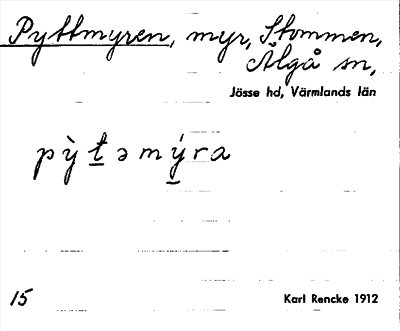 Pyttmyren, myr, Stommen,
Älgå sn,
Jösse hd, Värmlands län
pỳt̲əmý̲ra
15
Karl Rencke 1912